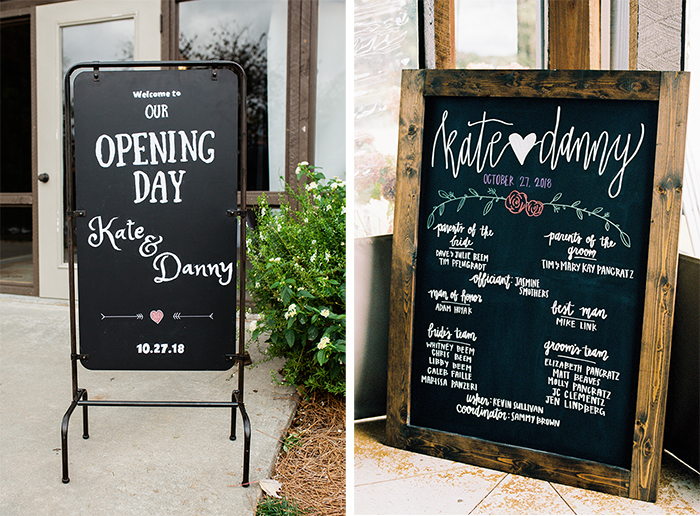 Welcome to
OUR
OPENING
DAY
Kate &
Danny
10.27.18
kate danny
OCTOBER 27, 2018
parents of the
bride
DAVE & JULIE BEEM
TIM PFLUGRADT
parents of the
groom
TIM & MARY KAY PANGRATZ
officiant: JASMINE
SMOTHERS
man of honor
ADAM HOJAK
best man
MIKE LINK
bride's team
WHITNEY BEEM
CHRIS BEEM
LIBBY BEEM
CALEB FAILLE
MARISSA PANZERI
groom's team
ELIZABETH PANGRATZ
MATT BEAVES
MOLLY PANGRATZ
JC CLEMENTZ
JEN LINDBERG
usher: KEVIN SULLIVAN
coordinator: SAMMY BROWN